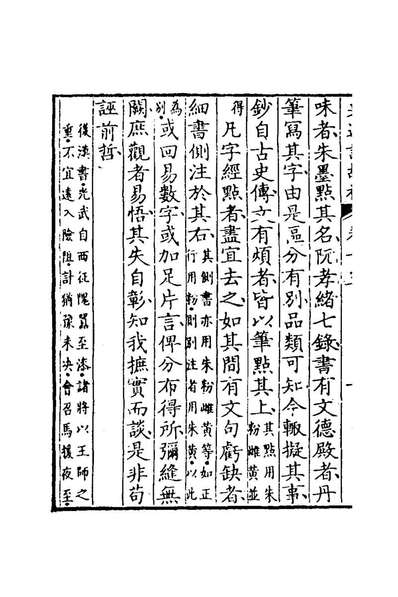 味者朱墨點其名阮孝緒七錄書有文德殿者丹
筆寫其字由是區分有別品類可知今輙擬其事
鈔自古史傳文有煩者皆以筆點其上其點用朱粉雌黃並
得凡字經點者盡宜去之如其間有文句虧缺者
細書側注於其右其側書亦用朱粉雌黃等如正行用粉則側注者用朱黃以此
為別或回易數字或加足片言俾分布得所彌縫無
闕庶觀者易悟其失自彰知我摭實而談是非苟
誣前哲
後漢書光武自西征隗囂至漆諸將以王師之
重不宜遠入險阻計猶豫未決會召馬援夜至